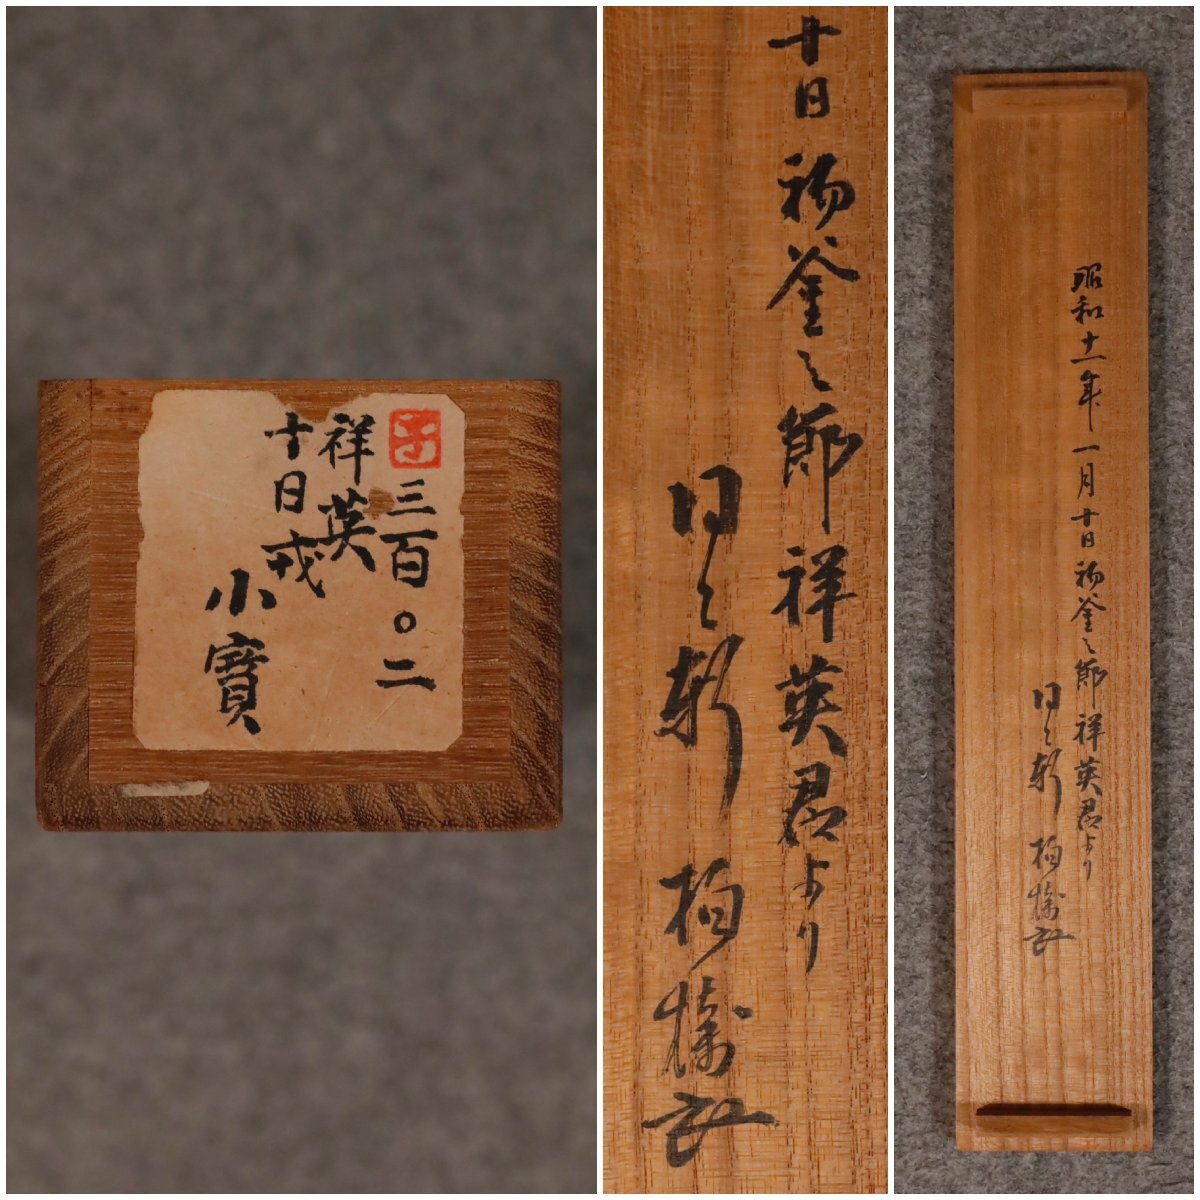 三百〇二
祥英
十日戎
小寳
十日初釜之節祥英君より
日々軒
昭和十一年一月十日初釜之節祥英君より
日々軒